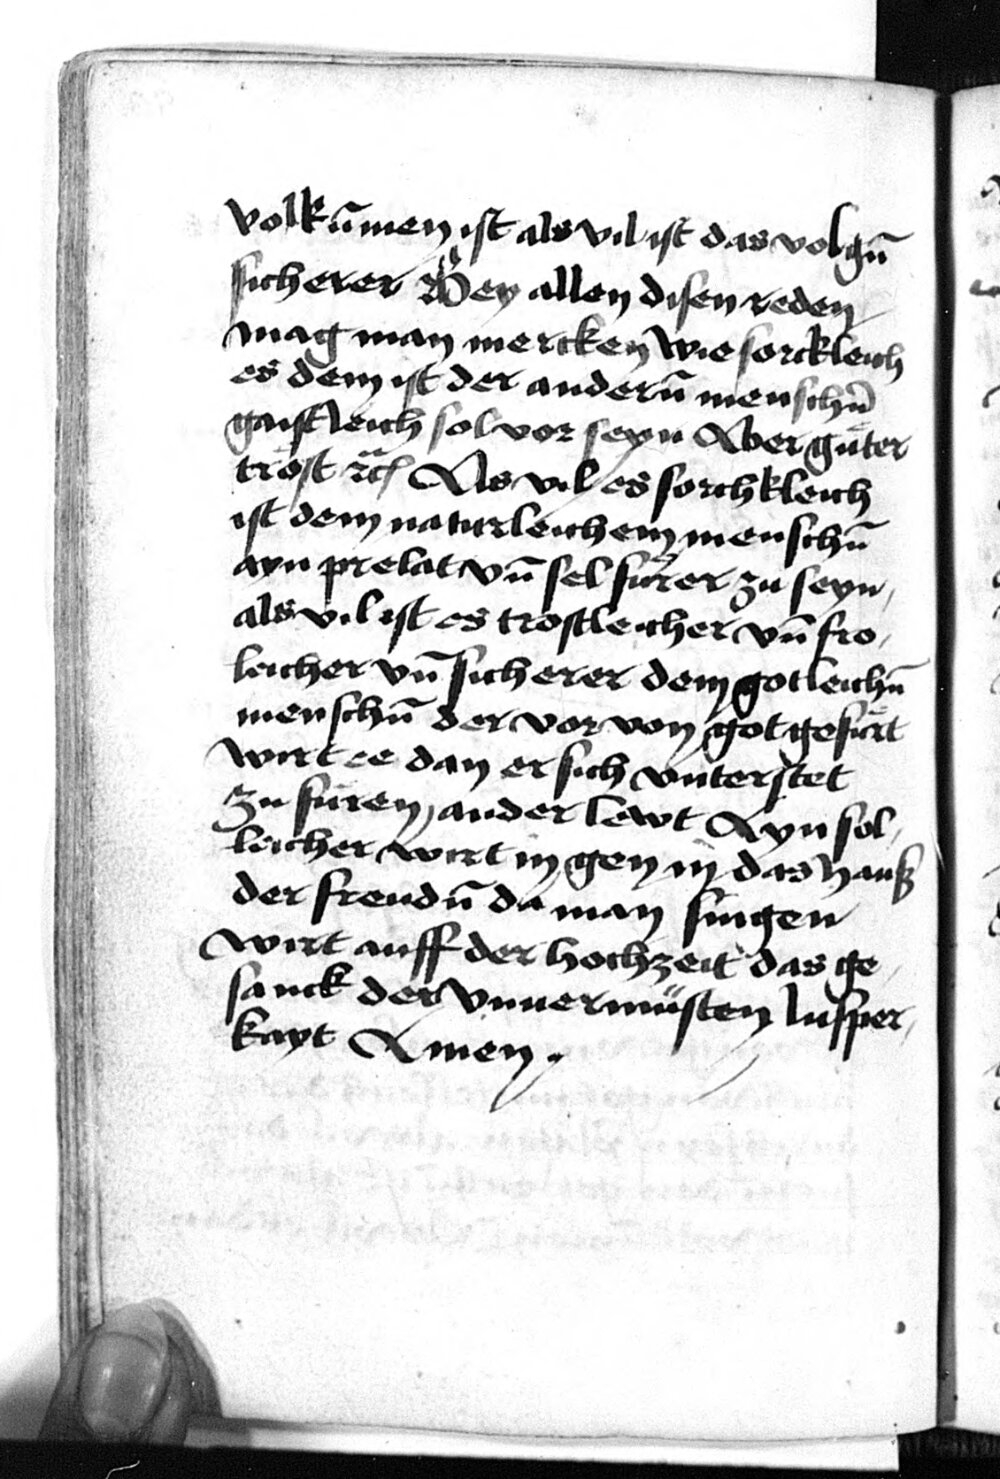 volkūmen ist als vil ist das volgū
sicherer Bey allen disen reden
mag man mercken wie sorckleich
es dem ist der anderū menschū
gaistleich sol vor seyn Aber guter
trost Als vil es sorchkleich
ist dem naturleichem menschū
ayn prelat vn̄ sel furer zu seyn
als vil ist es trostleicher vn̄ fro,
leicher vn̄ sicherer dem gotleichū
menschū der vor von got gefürt
wirt ee dan er sich vnterstet
zu füren, ander lewt Ayn sol,
leicher wirt in gen in das hauß
der freudū da man singen
wirt auff der hochzeit das ge,
sanck der vnuermüsten lusper,
kayt Amen.